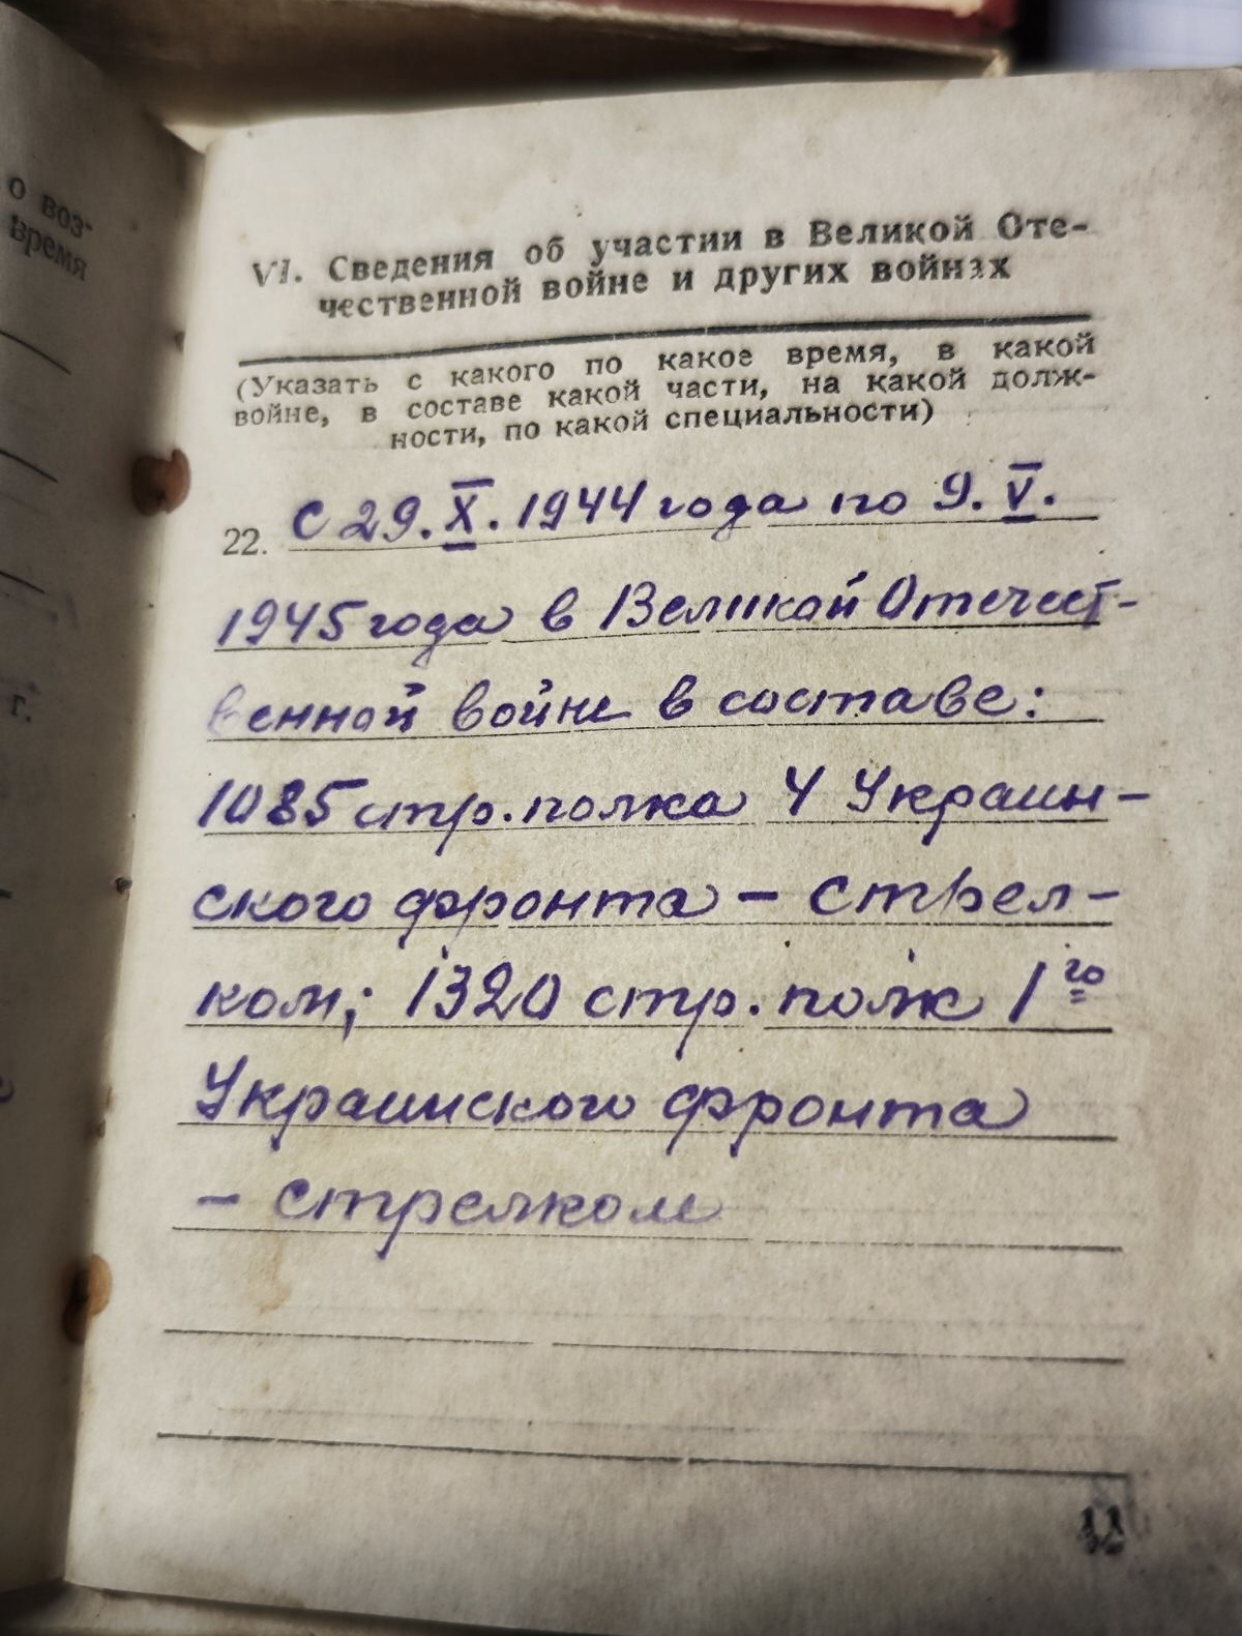 о воз-
время
г.
VI. Сведения об участии в Великой Оте-
чественной войне и других войнах
(Указать с какого по какое время, в какой
войне, в составе какой части, на какой долж-
ности, по какой специальности)
22. С 29. X. 1944 года по 9. V.
1945 года в Великой Отечест-
венной войне в составе:
1085 стр. полка 4 Украин-
ского фронта – стрел-
ком; 1320 стр. полк 1го
Украинского фронта
– стрелком